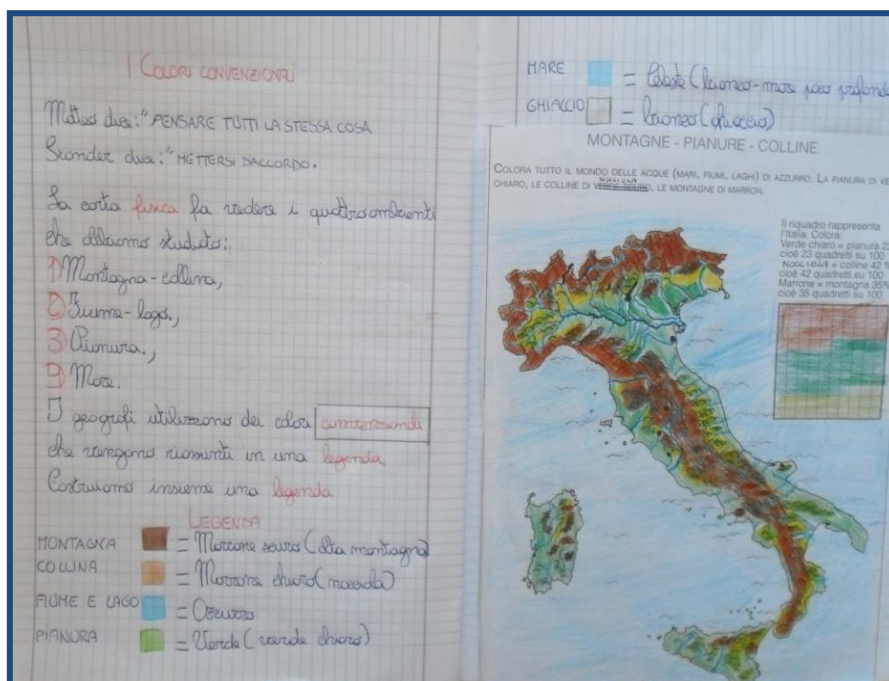 I COLORI CONVENZIONALI
Matteo dice: "PENSARE TUTTI LA STESSA COSA
Skander dice: "METTERSI DACCORDO.
La carta fisica fa vedere i quattro ambienti
che abbiamo studiato:
1) Montagna-collina,
2) Fiume-lago.,
3) Pianura.,
Mare.
I geografi utilizzano dei colori convenzionali
che vengono riassunti in una legenda
Costruiamo insieme una legenda
LEGENDA
MONTAGNA = Marrone scuro (alta montagna)
COLLINA = Marrone chiaro (nocciola)
FIUME E LAGO = Azzurro
PIANURA = Verde (verde chiaro)
MARE = Celeste (bianco-mare poco profondo
GHIACCIO = bianco (ghiaccio)
MONTAGNE - PIANURE - COLLINE
COLORA TUTTO IL MONDO DELLE ACQUE (MARI, FIUMI, LAGHI) DI AZZURRO. LA PIANURA DI VE
CHIARO, LE COLLINE DI NOCCIOLA, LE MONTAGNE DI MARRON.
Il riquadro rappresenta
l'Italia. Colora:
Verde chiaro = pianura 2
cioè 23 quadretti su 100
NOCCIOLA = colline 42 %
cioè 42 quadretti su 100
Marrone = montagna 35%
cioè 35 quadretti su 100